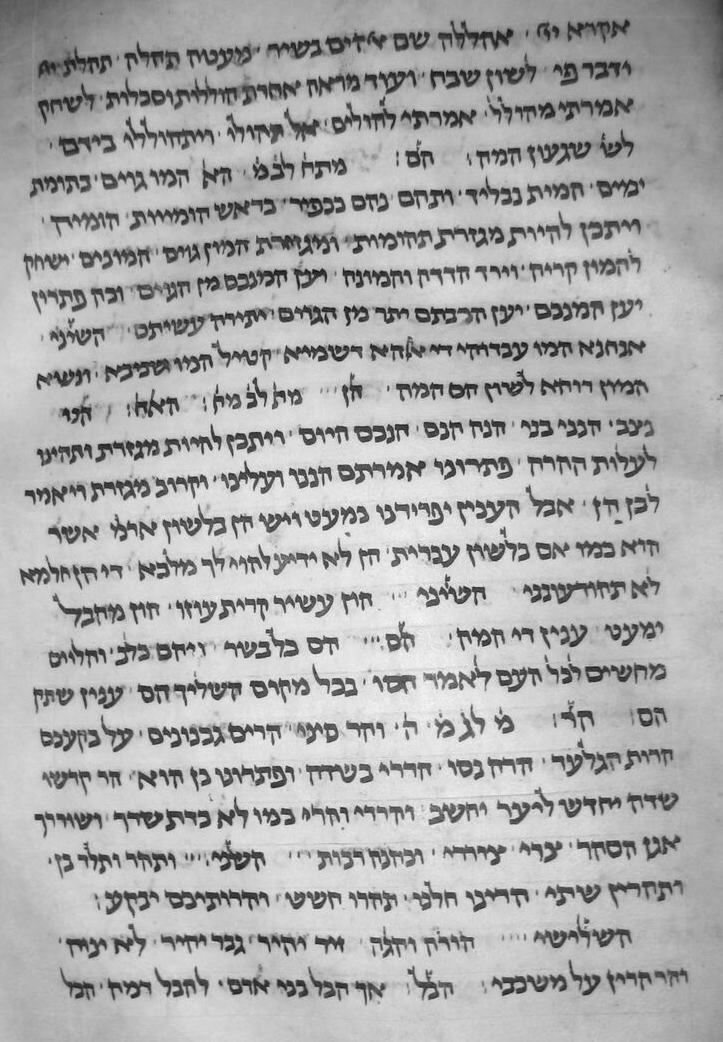 אקרא יי׳ ׳ אהללה שם אלהים בשיר ׳ מעטה תהלה ׳ תהלת יי׳
ודבר פי ׳ לשון שבח ׳ ועוד מראה אחרת הוללות וסכלות ׳ לשחק
אמרתי מהולל ׳ אמרתי להולים ׳ אל תהולו ׳ ויתהוללו בידם ׳
לש׳ שגעון המה ׃ הם ׃ מתח׳ לב מ׳ הא המו גוים ׳ כתומת
ימים ׳ המית נבליך ׳ ונהם נהם ככפיר ׳ בראש הומויות ׳ הומיה ׳
ויתכן להיות מגזרת תהומות ׳ ומגזרת המון גוים ׳ המונים ישחק
להמון קריה ׳ וירד הדרה והמונה ׳ יען המנכם מן הגוים ׳ וכה פתרון
יען המנכם ׳ יען הרבתם יתר מן הגוים ׳ יתירה עשיתם ׳ השיני ׳
אנחנא המו עבדוהי די אלהא דשמייא ׳ קטיל המו שביבא ׳ ונשוא
המון דוחא לשון הם המה ׳ הן ׃ מת׳ לב מח׳ ׃ האח׳ ׃ הנו
ניצב ׳ הנני בני ׳ הנה הנם ׳ הנכם היום ׳ ויתכן להיות מגזרת ותהינו
לעלות ההרה ׳ פתרונו אמרתם הננו ועלינו ׳ וקרוב מגזרת ויאמר
לבן הן ׳ אבל הענין יפרידנו במעט ויש הן בלשון ארמ׳ אשר
הוא כמו אם בלשון עברית ׳ הן לא ידיע להוי לך מלכא ׳ די הן חלמא
לא תהודעונני ׳ השיני ׃ הון עשיר קרית עוזו ׳ הון מהבל
ימעט ׳ ענין די המה ׃ הס ׃ הס כל בשר ׳ ויהס כלב ׳ והלוים
מחשים לכל העם לאמר הסו ׳ בכל מקום השליך הס ׳ ענין שתק
הס ׃ הר ׃ מ׳ לג מ׳ ה׳ ׳ והר סיני ׳ הרים גבנונים ׳ על בקעכם
הרות הגלעד ׳ הרה נסו ׳ הררי בשדה ׳ ופתרונו כן הוא ׳ הר קדשו
שדה יחדשו ליער יחשב ׳ והררי והרי כמו לא כרת שרך ׳ ושורריך
אגן הסהר ׳ צרי ׳ צוורי ׳ וכהנה רבות ׃ השני ׃ ותהר ותלד בן ׳
ותהריון שיתי ׳ הרינו חלנו ׳ תהרו חשש ׳ והרותיהם יבקע ׃
השלישי ׃ הורה והגה ׳ זיד יהיר ׳ גבר יהיר ׳ לא ינוה ׳
והרהרין על משכבי ׃ הבל ׃ אך הבל בני אדם ׳ להבל דמה ׳ הבל